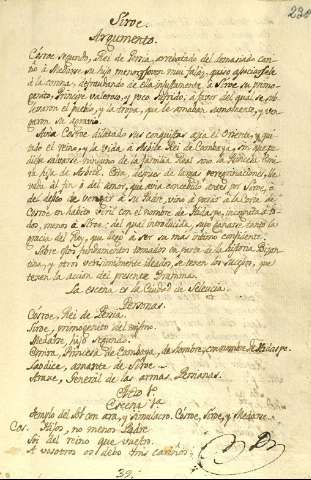 238
Siroe.
Argumento.
Cosroe segundo, Rei de Persia, arrebatado del demasiado ca-
riño à Medarse su hijo menor, joven muy falaz, quiso asociarsele
à la corona, defraudando de ella injustamente, à Siroe su primo-
genito, Principe valeroso, y poco sufrido, à favor del qual se su-
blevaron el pueblo, y la tropa, que le amaban sumamente, y ven-
garon su agravio.
Avia Cosroe dilatado sus conquistas azia el Oriente, y qui-
tado el reino, y la vida, à Asbite Rei de Cambaya, sin que pu-
diese salvarse ninguno de la familia Real sino la Princesa Emi-
ra hija de Asbite. Esta, despues de largas peregrinaciones, lle-
vada al fin ò del amor, que avia concebido antes por Siroe, ò
del deseo de vengar à su Padre, vino à parar à la Corte de
Cosroe en habito viril con el nombre de Hidaspe, incognita à to-
dos, menos à Siroe; del qual introducida, supo ganarse tanto la
gracia del Rey, que llegò à ser su mas intimo confidente.
Sobre estos fundamentos tomados en parte de la historia Bizan-
tina, y otros verosimilmente ideados, se texen los sucesos, que
texen la accion del presente Dramma.
La escena es la Ciudad de Seleucia.
Personas.
Cosroe, Rei de Persia.
Siroe, primogenito del mismo.
Medarse, hijo segundo.
Emira, Princesa de Cambaya, de hombre, con nombre de Hidaspe.
Laodice, amante de Siroe.
Araxe, General de las armas Persianas.
Acto 1º
Escena 1ª
Templo del Sol con ara, y simulacro. Cosroe, Siroe, y Medarse.
Cos. Hijos, no menos Padre
Soi del reino que vuestro.
A vosotros os debo mis cariños;
39.